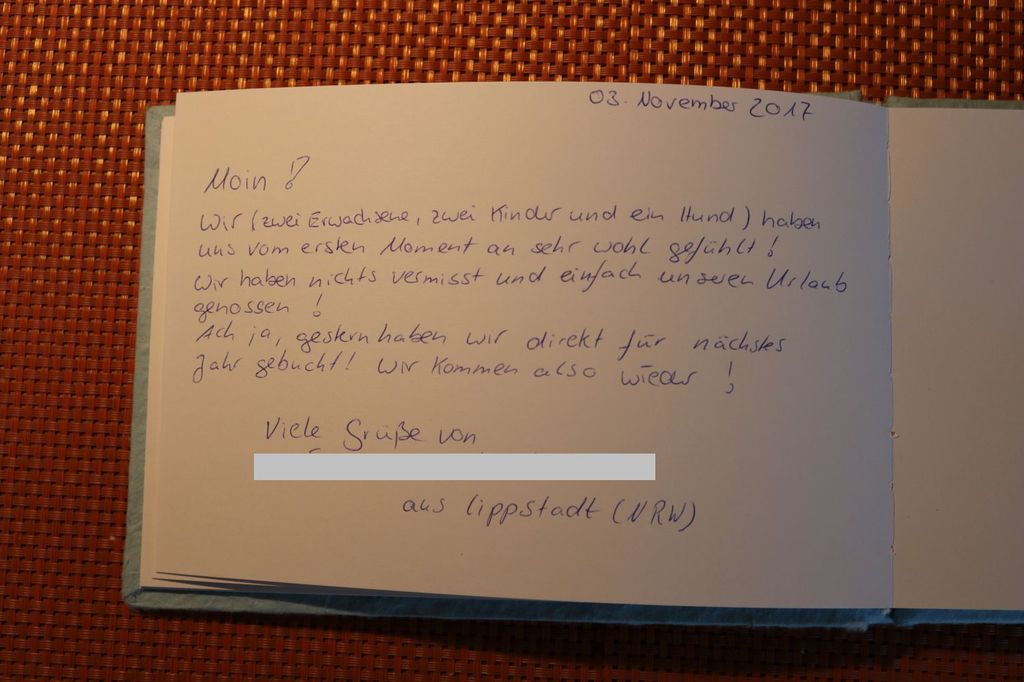 03. November 2017
Moin !
Wir (zwei Erwachsene, zwei Kinder und ein Hund) haben
uns vom ersten Moment an sehr wohl gefühlt !
Wir haben nichts vermisst und einfach unseren Urlaub
genossen !
Ach ja, gestern haben wir direkt für nächstes
Jahr gebucht! Wir kommen also wieder !
Viele Grüße von
aus Lippstadt (NRW)